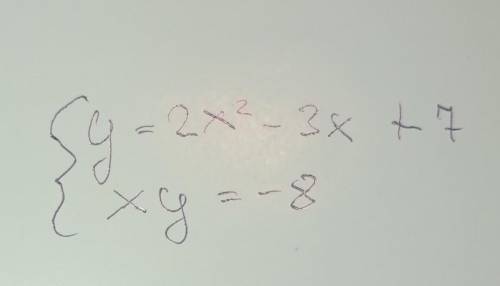 y = 2x² - 3x + 7
xy = -8